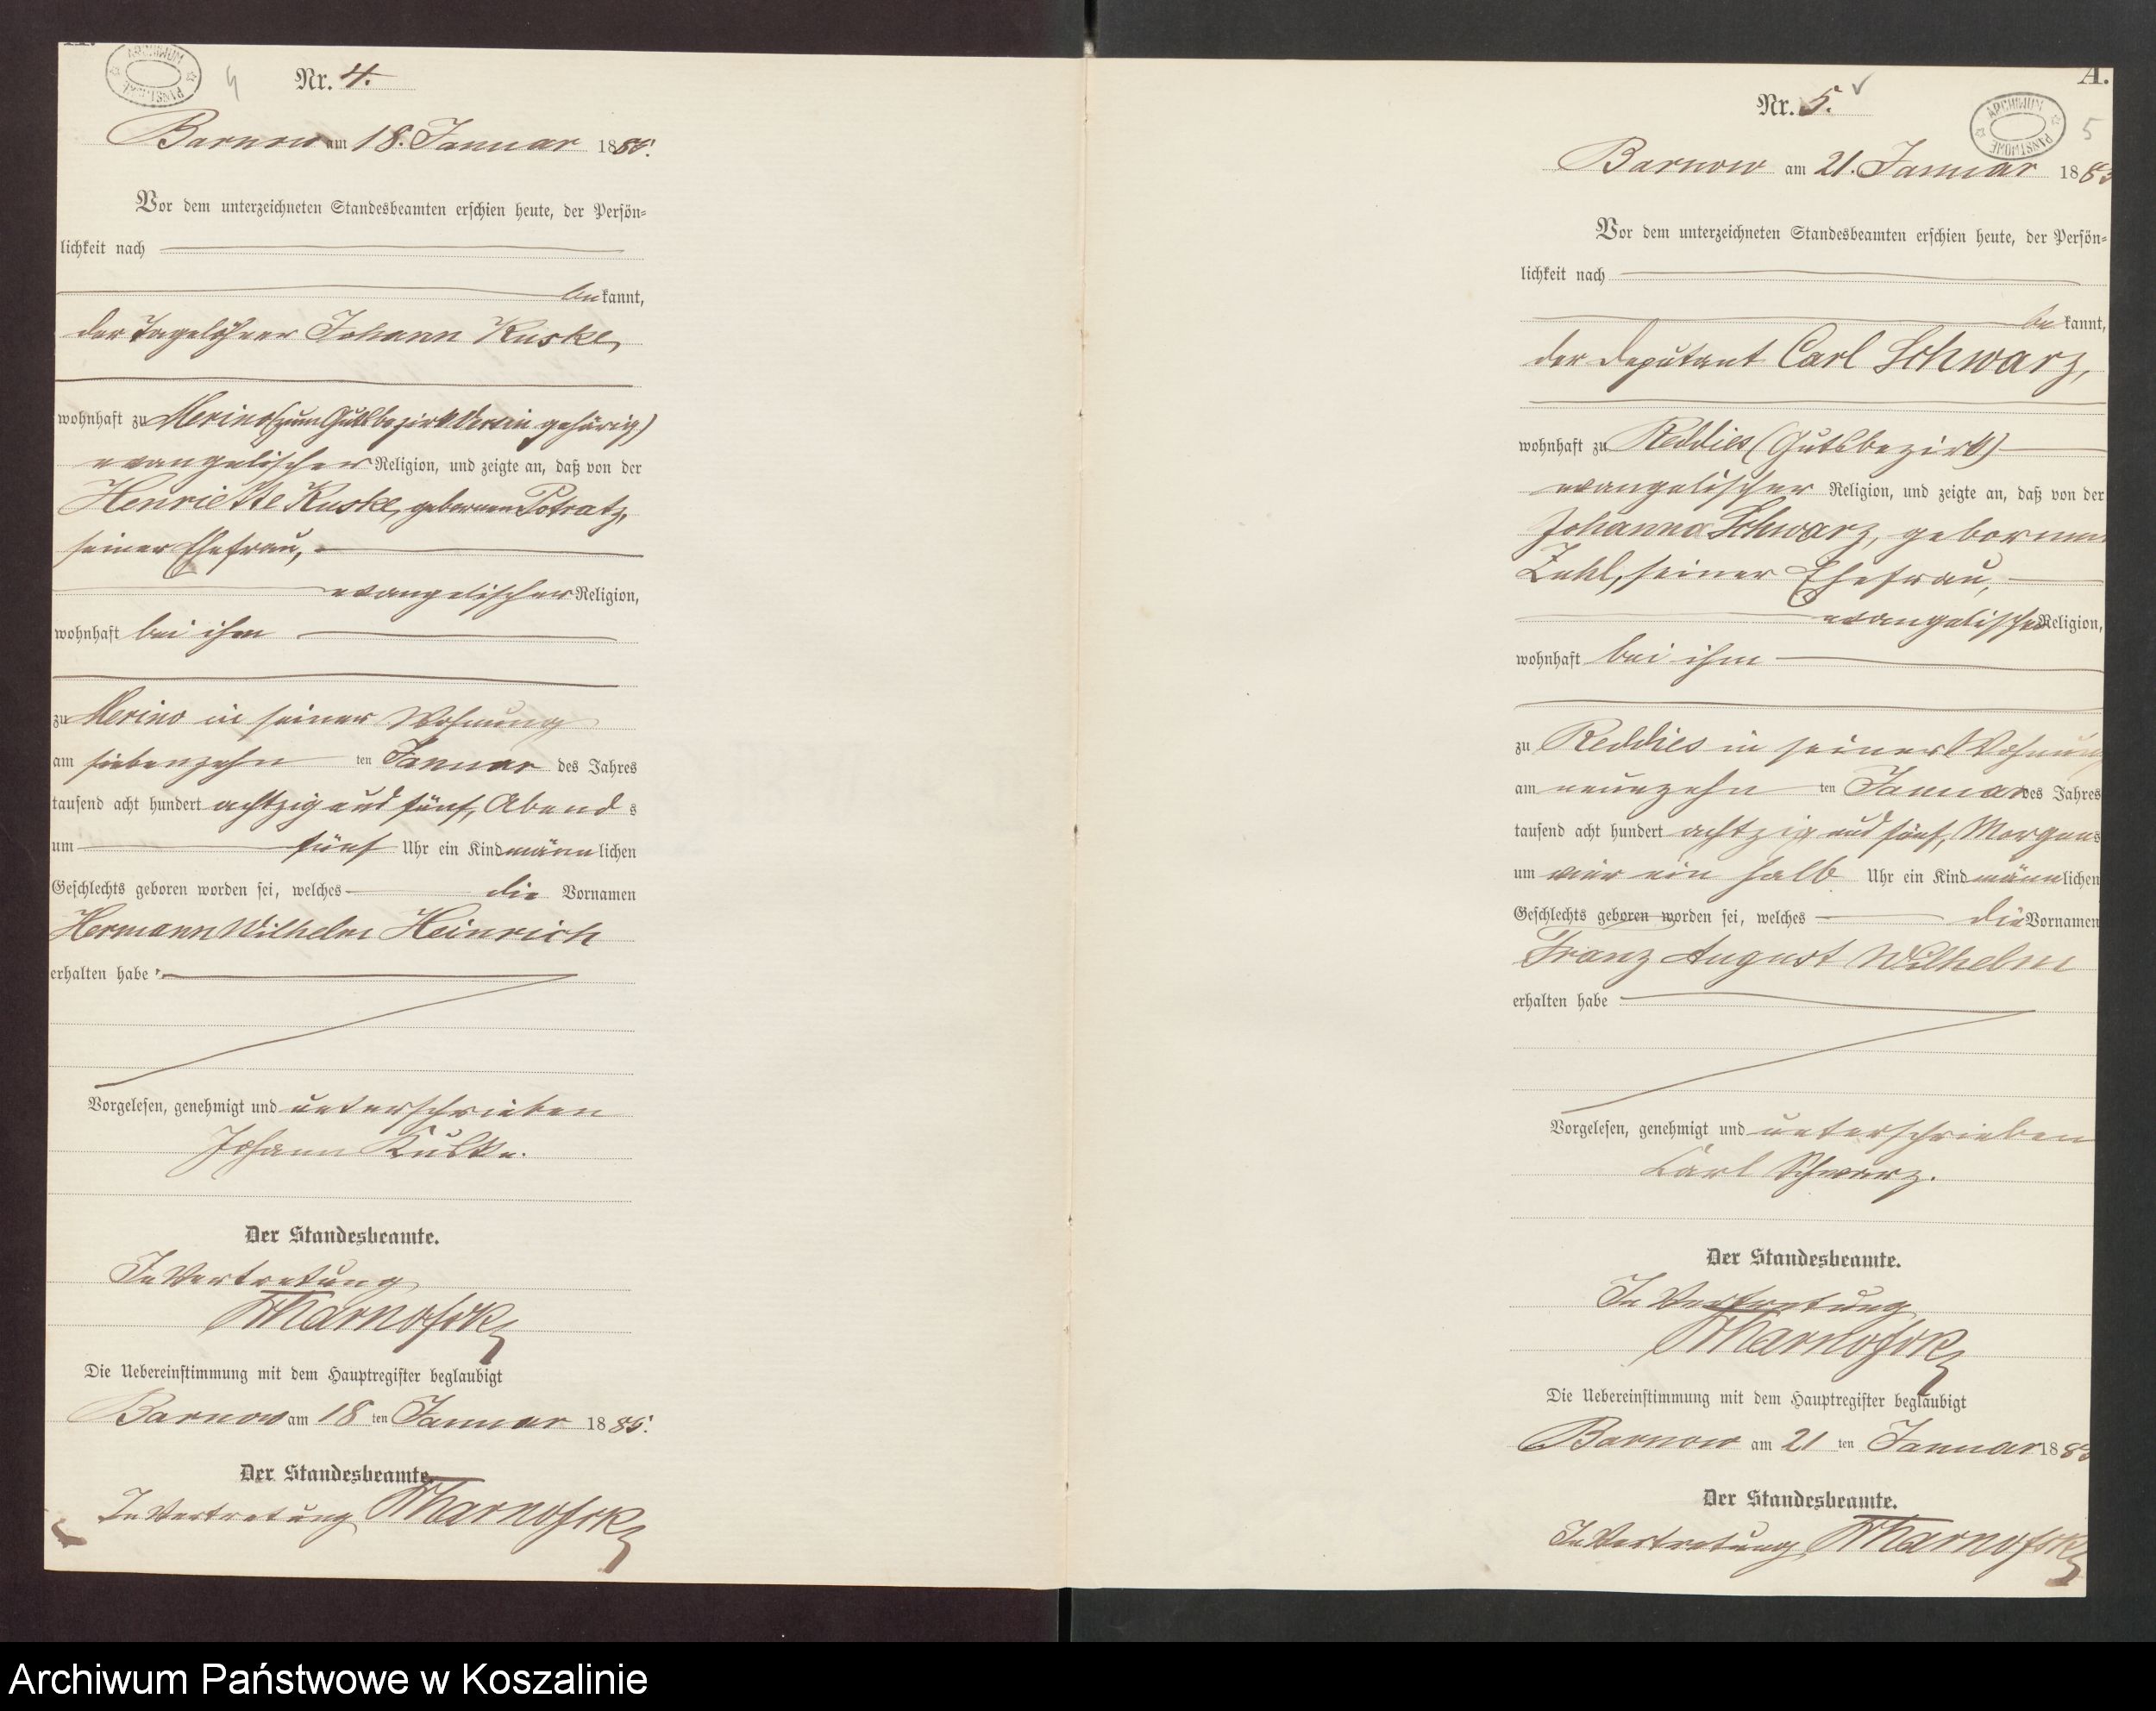 A.
ARCHIWUM PAŃSTWOWE
4
Nr. 4.
Barnow am 18. Januar 1885.
Vor dem unterzeichneten Standesbeamten erschien heute, der Persön=
lichkeit nach
bekannt,
der Tagelöhner Johann Kuske,
wohnhaft zu Merino (zum Gutsbezirk Versin gehörig)
evangelischer Religion, und zeigte an, daß von der
Henriette Kuske, geborenen Potratz,
seiner Ehefrau,
evangelischer Religion,
wohnhaft bei ihm
zu Merino in seiner Wohnung
am siebenzehn ten Januar des Jahres
tausend acht hundert achtzig und fünf, Abends
um fünf Uhr ein Kind männlichen
Geschlechts geboren worden sei, welches die Vornamen
Hermann Wilhelm Heinrich
erhalten habe
Vorgelesen, genehmigt und unterschrieben
Johann Kuske.
Der Standesbeamte.
In Vertretung
Die Uebereinstimmung mit dem Hauptregister beglaubigt
Barnow am 18 ten Januar 1885.
Der Standesbeamte.
In Vertretung
A.
Nr. 5.
ARCHIWUM PAŃSTWOWE
5
Barnow am 21. Januar 1885
Vor dem unterzeichneten Standesbeamten erschien heute, der Persön=
lichkeit nach
bekannt,
der Deputant Carl Schwarz,
wohnhaft zu Reddies (Gutsbezirk)
evangelischer Religion, und zeigte an, daß von der
Johanna Schwarz, geborenen
seiner Ehefrau,
evangelischer Religion,
wohnhaft bei ihm
zu Reddies in seiner Wohnung
am neunzehn ten Januar des Jahres
tausend acht hundert achtzig und fünf, Morgens
um vier ein halb Uhr ein Kind männlichen
Geschlechts geboren worden sei, welches die Vornamen
Franz August Wilhelm
erhalten habe
Vorgelesen, genehmigt und unterschrieben
Carl Schwarz.
Der Standesbeamte.
In Vertretung
Die Uebereinstimmung mit dem Hauptregister beglaubigt
Barnow am 21 ten Januar 1885
Der Standesbeamte.
In Vertretung
Archiwum Państwowe w Koszalinie